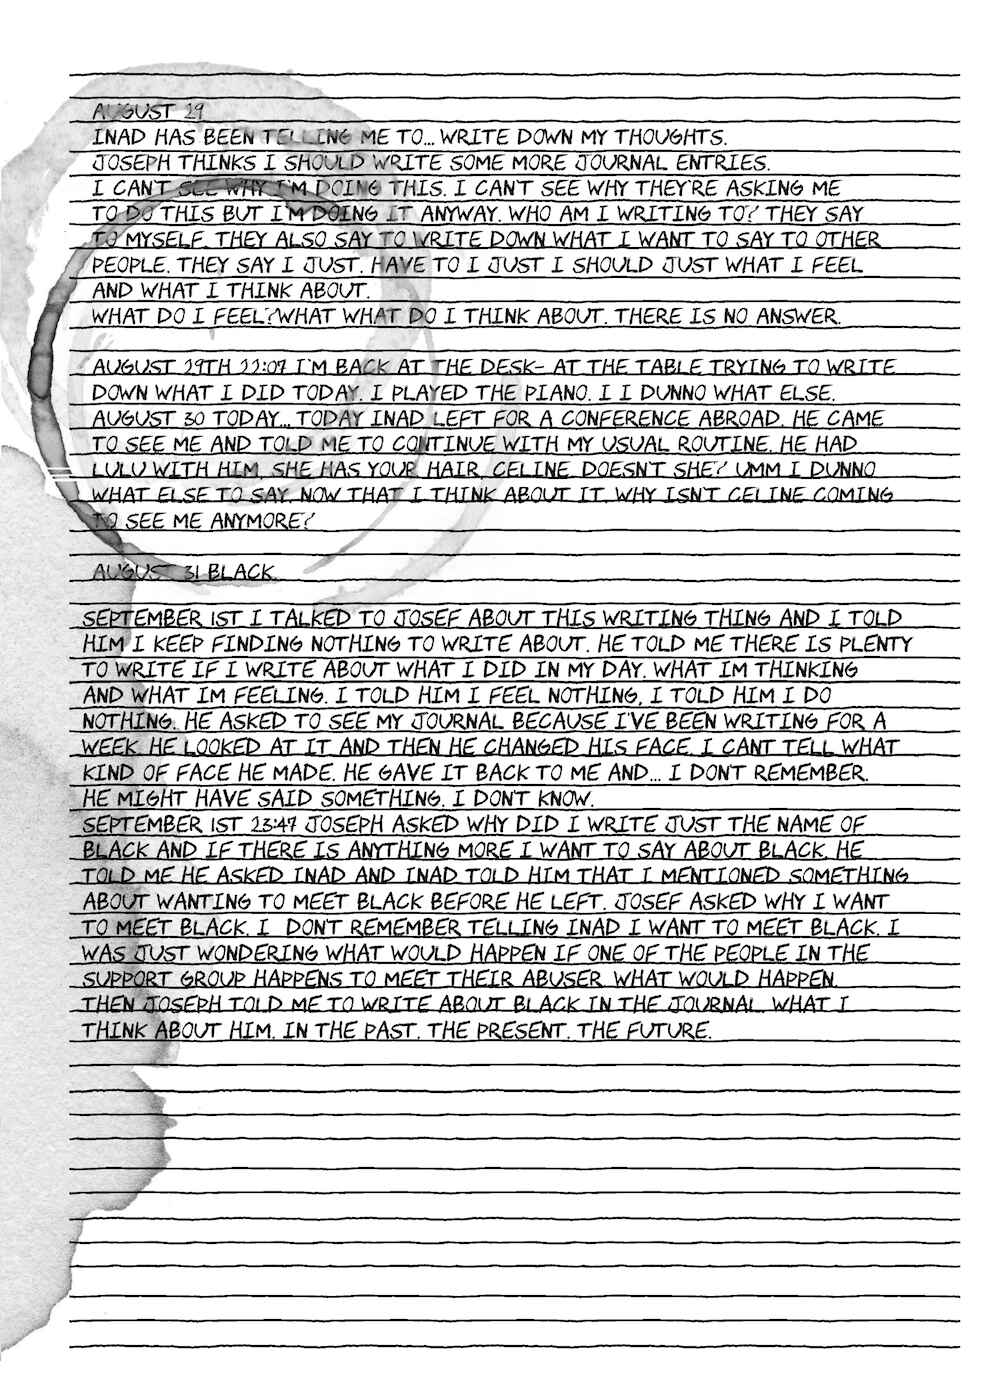 AUGUST 29
INAD HAS BEEN TELLING ME TO... WRITE DOWN MY THOUGHTS.
JOSEPH THINKS I SHOULD WRITE SOME MORE JOURNAL ENTRIES.
I CAN'T SEE WHY I'M DOING THIS. I CAN'T SEE WHY THEY'RE ASKING ME
TO DO THIS BUT I'M DOING IT ANYWAY. WHO AM I WRITING TO? THEY SAY
TO MYSELF. THEY ALSO SAY TO WRITE DOWN WHAT I WANT TO SAY TO OTHER
PEOPLE. THEY SAY I JUST. HAVE TO I JUST I SHOULD JUST WHAT I FEEL
AND WHAT I THINK ABOUT.
WHAT DO I FEEL?WHAT WHAT DO I THINK ABOUT. THERE IS NO ANSWER.
AUGUST 29TH 22:07 I'M BACK AT THE DESK- AT THE TABLE TRYING TO WRITE
DOWN WHAT I DID TODAY. I PLAYED THE PIANO. I I DUNNO WHAT ELSE.
AUGUST 30 TODAY... TODAY INAD LEFT FOR A CONFERENCE ABROAD. HE CAME
TO SEE ME AND TOLD ME TO CONTINUE WITH MY USUAL ROUTINE. HE HAD
LULU WITH HIM. SHE HAS YOUR HAIR, CELINE. DOESN'T SHE? UMM I DUNNO
WHAT ELSE TO SAY. NOW THAT I THINK ABOUT IT, WHY ISN'T CELINE COMING
TO SEE ME ANYMORE?
AUGUST 31 BLACK.
SEPTEMBER 1ST I TALKED TO JOSEF ABOUT THIS WRITING THING AND I TOLD
HIM I KEEP FINDING NOTHING TO WRITE ABOUT. HE TOLD ME THERE IS PLENTY
TO WRITE IF I WRITE ABOUT WHAT I DID IN MY DAY. WHAT IM THINKING
AND WHAT IM FEELING. I TOLD HIM I FEEL NOTHING, I TOLD HIM I DO
NOTHING. HE ASKED TO SEE MY JOURNAL BECAUSE I'VE BEEN WRITING FOR A
WEEK. HE LOOKED AT IT AND THEN HE CHANGED HIS FACE. I CANT TELL WHAT
KIND OF FACE HE MADE. HE GAVE IT BACK TO ME AND... I DON'T REMEMBER.
HE MIGHT HAVE SAID SOMETHING. I DON'T KNOW.
SEPTEMBER 1ST 23:47 JOSEPH ASKED WHY DID I WRITE JUST THE NAME OF
BLACK AND IF THERE IS ANYTHING MORE I WANT TO SAY ABOUT BLACK. HE
TOLD ME HE ASKED INAD AND INAD TOLD HIM THAT I MENTIONED SOMETHING
ABOUT WANTING TO MEET BLACK BEFORE HE LEFT. JOSEF ASKED WHY I WANT
TO MEET BLACK. I DON'T REMEMBER TELLING INAD I WANT TO MEET BLACK. I
WAS JUST WONDERING WHAT WOULD HAPPEN IF ONE OF THE PEOPLE IN THE
SUPPORT GROUP HAPPENS TO MEET THEIR ABUSER WHAT WOULD HAPPEN.
THEN JOSEPH TOLD ME TO WRITE ABOUT BLACK IN THE JOURNAL. WHAT I
THINK ABOUT HIM. IN THE PAST. THE PRESENT. THE FUTURE.